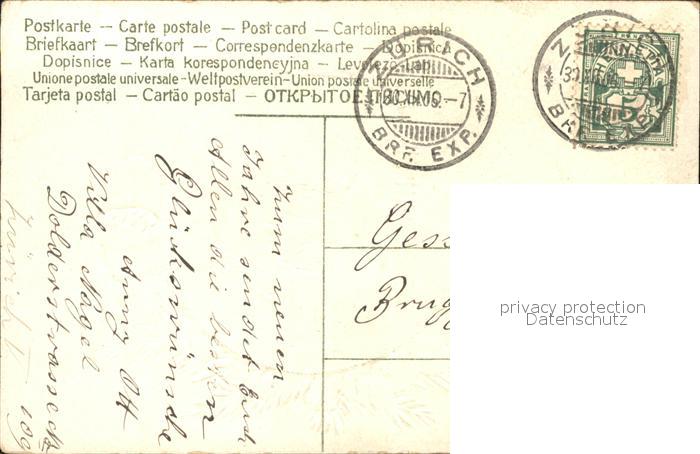 Postkarte – Carte postale – Postcard – Cartolina postale
Briefkaart – Brefkort – Correspondenzkarte – Dopisnica
Dopisnice – Karta korespondencyjna – Levelező-Lap
Unione postale universale – Weltpostverein – Union postale universelle
Tarjeta postal – Cartão postal – ОТКРЫТОЕ ПИСЬМО.
ZÜRICH
30.XII.05.–7
BRF. EXP.
BRF. EXP.
5
Zum neuen
Jahre sendet Euch
Allen die besten
Glückswünsche
Anna Ott
Villa Nagel
Dolderstrasse
Zürich V 109
Gess
Brug
privacy protection
Datenschutz